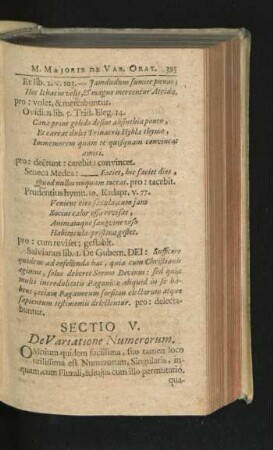 M. MAJORIS DE VAR. ORAT. 195
Et lib. 2. v. 103. — Jamdudum sumite pœnas;
Hoc Ithacus velit, & magno mercentur Atridæ.
pro: volet, & mercabuntur.
Ovidius lib. 5. Trist. Eleg. 14.
Cana prius gelido desint absinthia ponto,
Et careat dulci Trinacris Hybla thymo,
Immemorem quam te quisquam convincat
amici.
pro: deerunt: carebit: convincet.
Seneca Medea: Faciet, hic faciet dies,
Quod nullus unquam taceat. pro: tacebit.
Prudentius hymn. 10. v. 77.
Venient cito sæcula, cum jam
Socius calor ossa revisat,
Animataque sanguine vivo
Habitacula pristina gestet.
pro: cum reviset: gestabit.
Salvianus lib. 1. De Gubern. DEI: Sufficere
quidem ad refellenda hæc, quia cum Christianis
agimus, solus deberet Sermo Divinus: sed quia
multi incredulitatis Paganicæ aliquid in se ha-
bent, etiam Paganorum forsitan electorum atque
sapientum testimoniis delectentur. pro: delecta-
buntur.
SECTIO V.
De Variatione Numerorum.
OMnium quidem facillima, suo tamen loco
utilissima est Numerorum, Singularis, in-
quam, cum Plurali, & hujus cum illo permutatio,
qua-